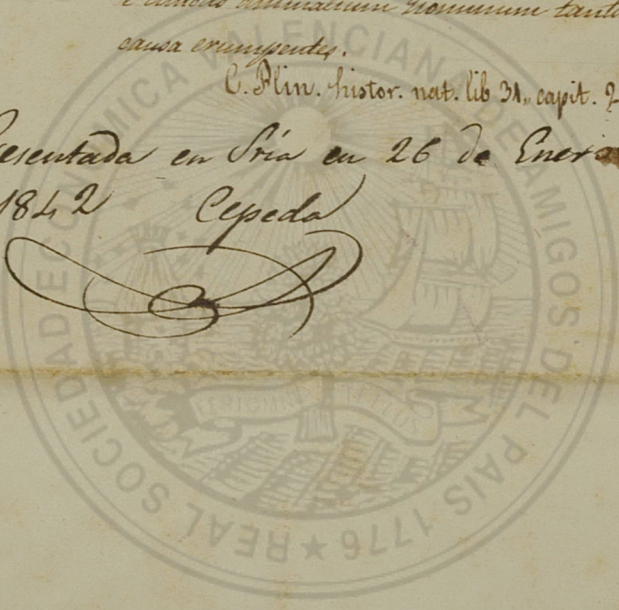 causa erumpentes.
C. Plin. histor. nat. lib 31, capit. 2
esentada en Sría en 26 de Enero
1842 Cepeda
REAL SOCIEDAD ECONOMICA VALENCIANA DE AMIGOS DEL PAIS 1776